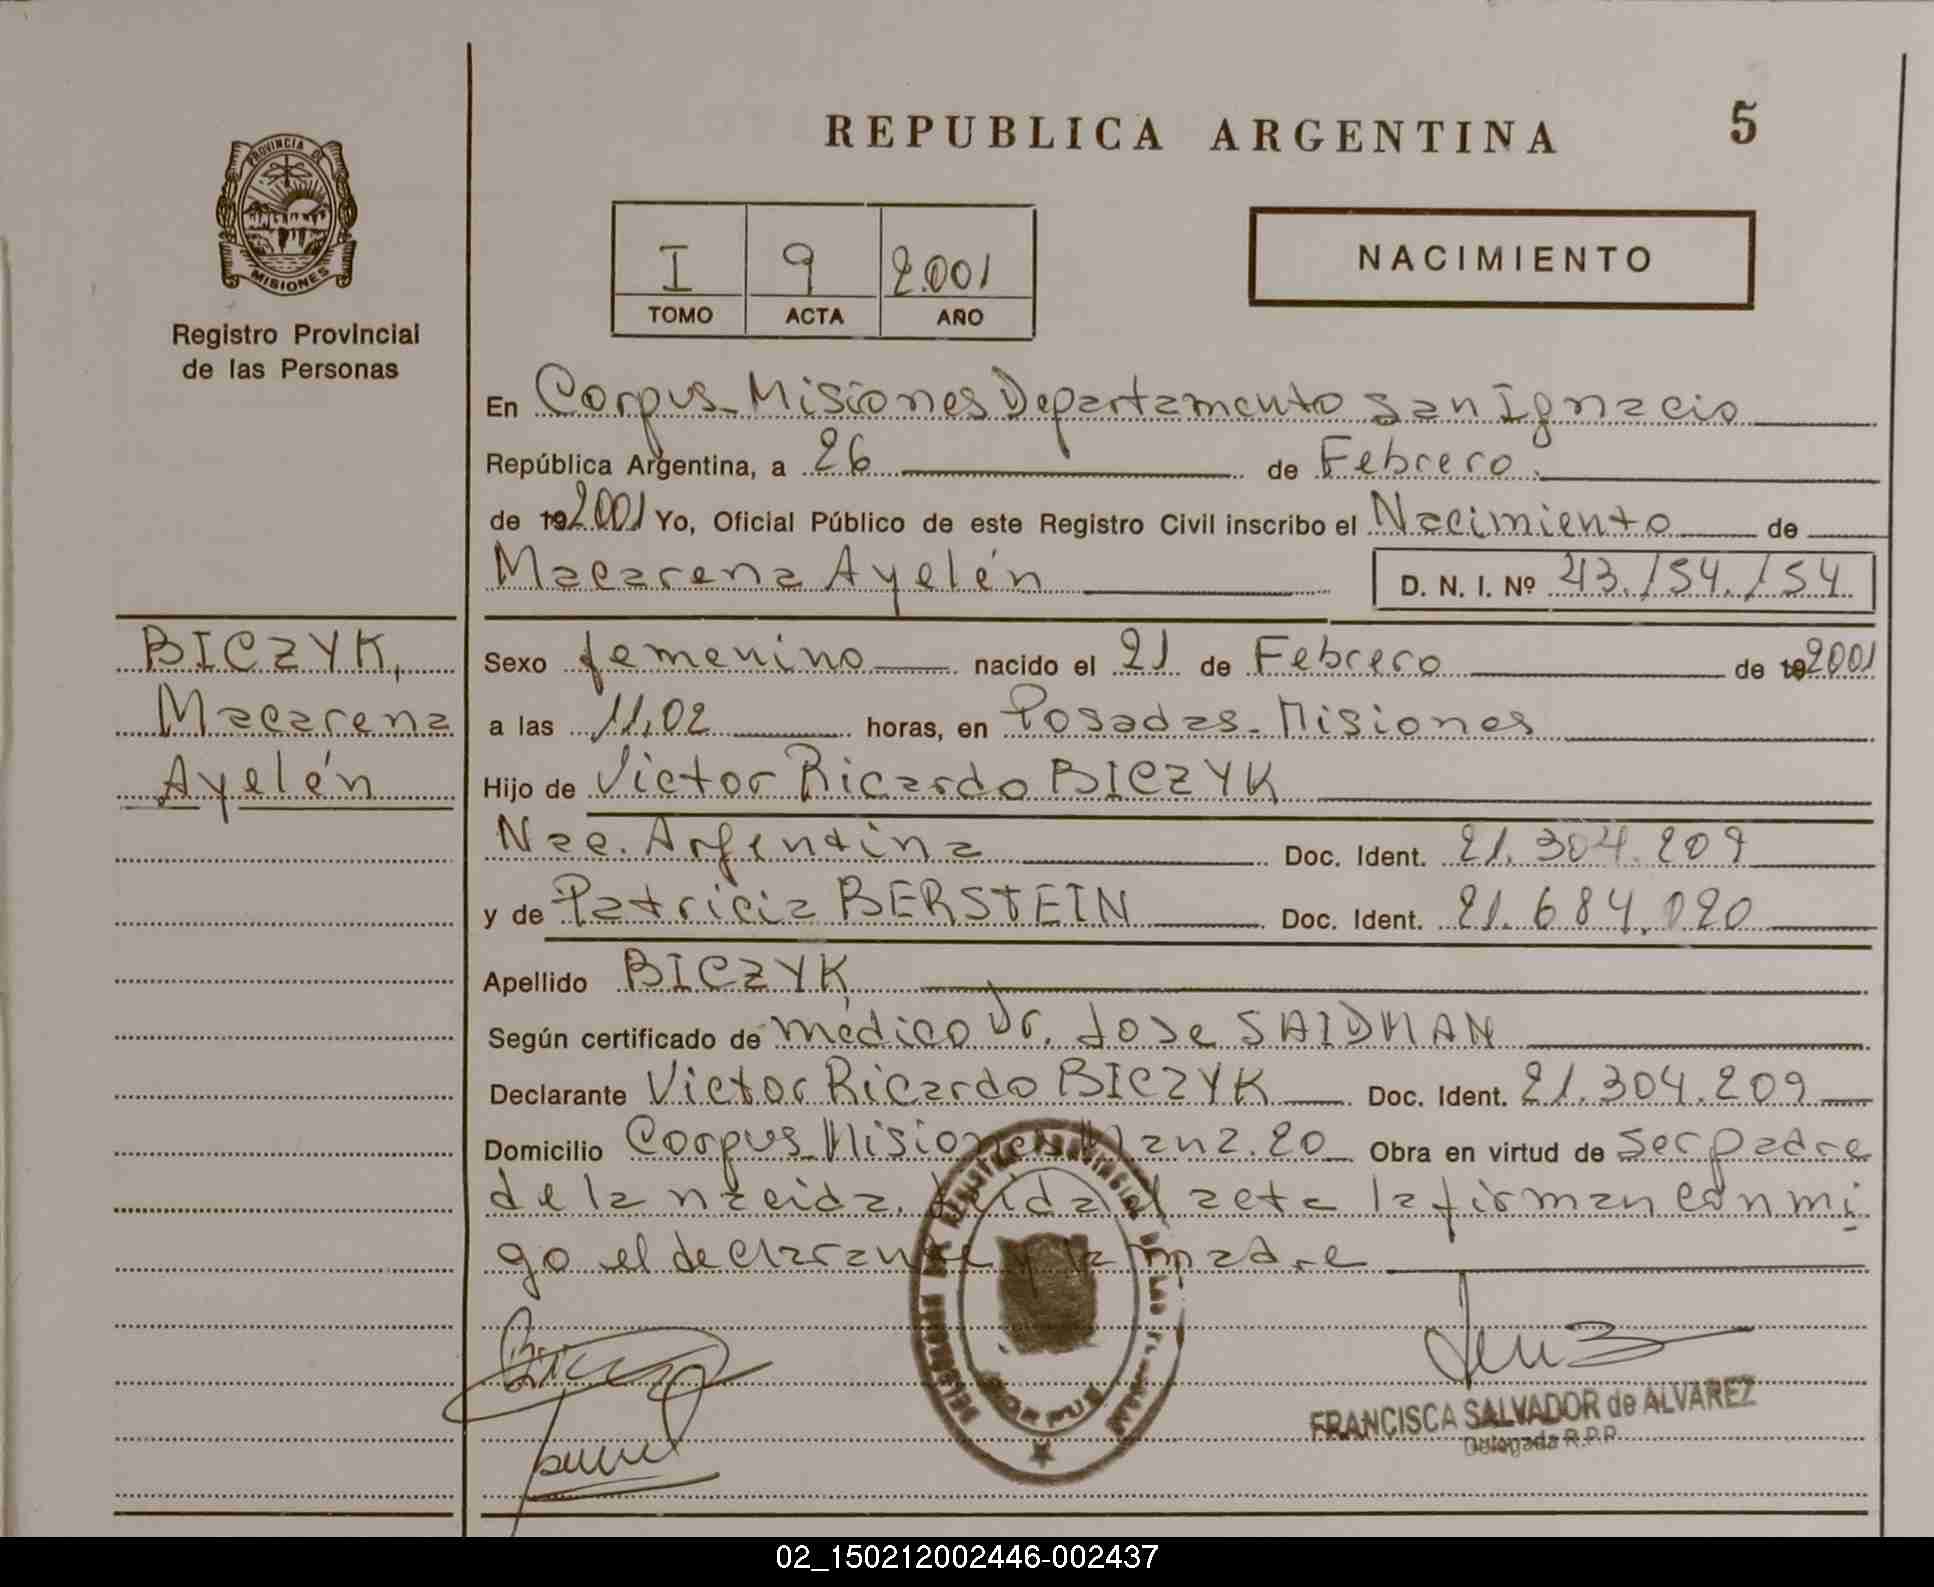 REPUBLICA ARGENTINA
5
PROVINCIA DE
MISIONES
Registro Provincial
de las Personas
I 9 2.001
TOMO ACTA AÑO
NACIMIENTO
En Corpus-Misiones Departamento San Ignacio
República Argentina, a 26 de Febrero
de 19 2001 Yo, Oficial Público de este Registro Civil inscribo el Nacimiento de
Macarena Ayelén D. N. I. Nº 43.154.154
BICZYK,
Macarena
Ayelén
Sexo femenino nacido el 21 de Febrero de 19 2001
a las 11,02 horas, en Posadas-Misiones
Hijo de Victor Ricardo BICZYK
Nac. Argentina Doc. Ident. 21.304.209
y de Patricia BERSTEIN Doc. Ident. 21.684.020
Apellido BICZYK
Según certificado de médico Dr. Jose SAIDMAN
Declarante Victor Ricardo BICZYK Doc. Ident. 21.304.209
Domicilio Corpus-Misiones Manz.20 Obra en virtud de ser padre
de la nacida. Leida el acta la firman conmi
go el declarante y la madre
CORPUS
FRANCISCA SALVADOR de ALVAREZ
Delegada R.P.P.
02_150212002446-002437